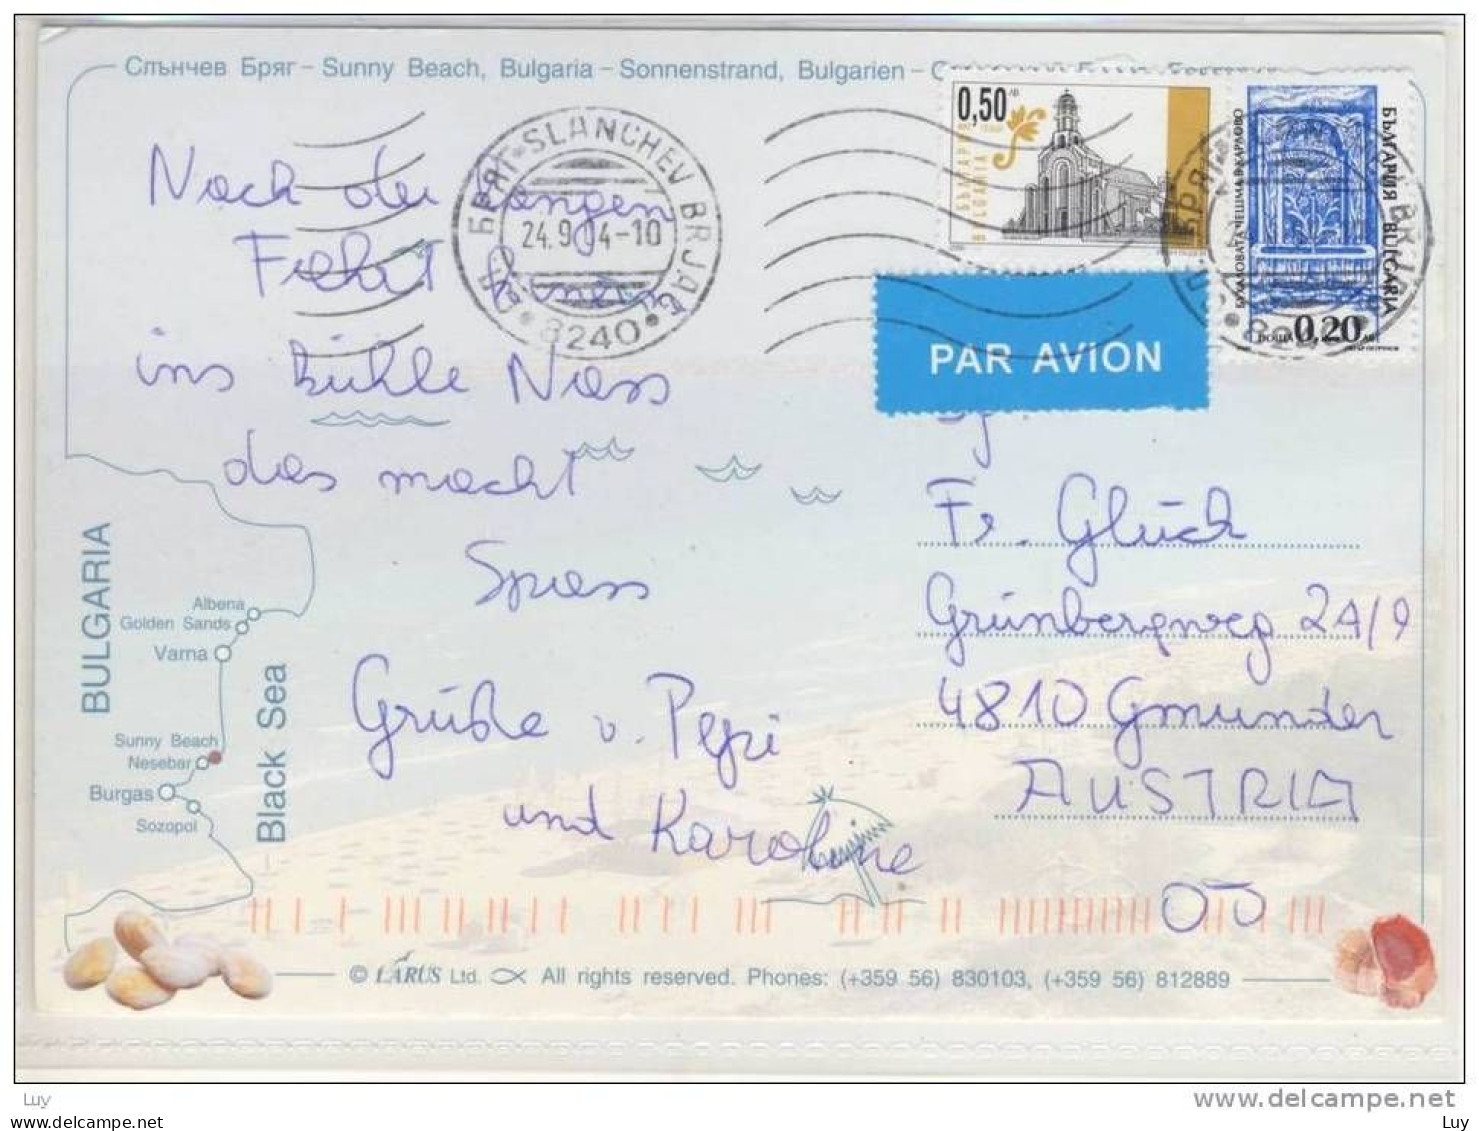 Слънчев Бряг – Sunny Beach, Bulgaria – Sonnenstrand, Bulgarien –
0,50 ЛВ
БЪЛГАРИЯ
BULGARIA
БЪЛГАРИЯ BULGARIA
БУХАЛОВАТА ЧЕШМА В КАРЛОВО
ПОЩА 0,20
SLANCHEV BRJAG
24.9. 04-10
8240
PAR AVION
Nach der langen
Fahrt hinein
ins kühle Nass
das macht
Spass
Grüße v. Pepi
und Karoline
Fr. Glück
Grünbergweg 2A/9
4810 Gmunden
AUSTRIA
OÖ
BULGARIA
Black Sea
Albena
Golden Sands
Varna
Sunny Beach
Nesebar
Burgas
Sozopol
© LARUS Ltd. All rights reserved. Phones: (+359 56) 830103, (+359 56) 812889
Luy
delcampe.net
www.delcampe.net
Luy